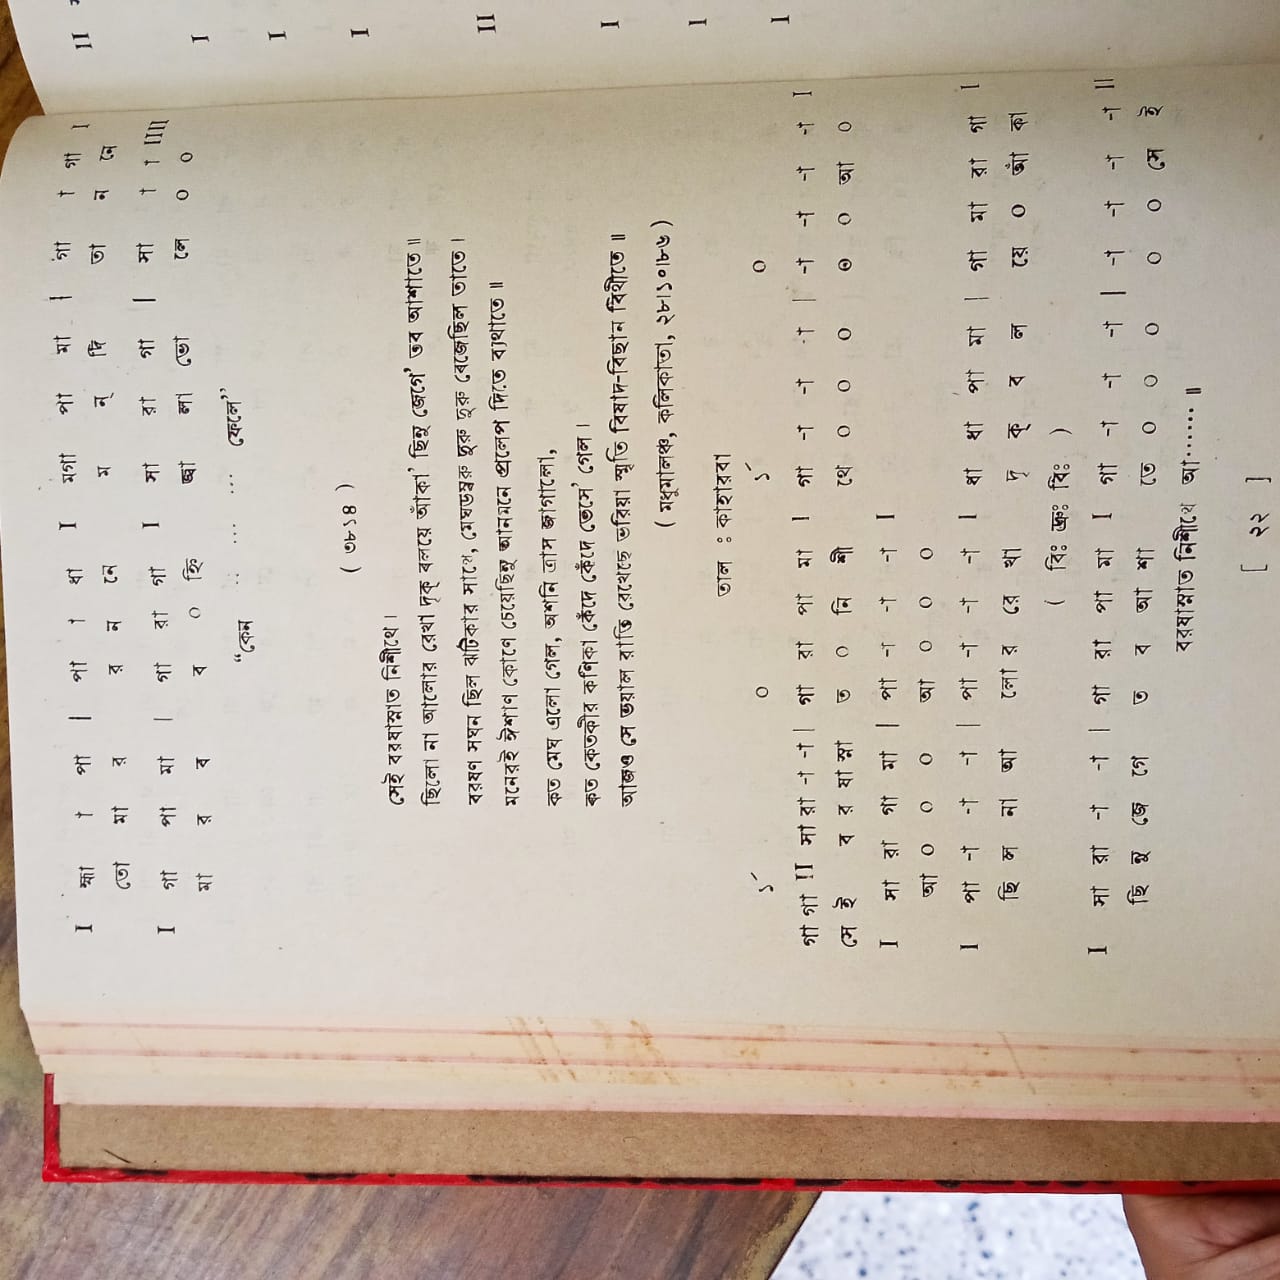 I হ্মা া পা | পা া ধা I মগা পা মা | গা া গা I
তো মা র র ন নে ম ন্ দি তা ন নে
I গা পা মা | গা রা গা I সা রা গা | সা া া IIII
মা র ব ব ০ হ্নি জ্বা লা ভো লে ০ ০
“কেন ... ... ... ফেলে”
( ৩৮১৪ )
সেই বরষাস্নাত নিশীথে।
ছিলো না আলোর রেখা দৃক্ বলয়ে আঁকা’ ছিনু জেগে’ তব আশাতে॥
বরষণ সঘন ছিল ঝটিকার সাথে, মেঘডম্বরু দুরু দুরু বেজেছিল তাতে।
মনেরই ঈশাণ কোণে চেয়েছিনু আনমনে প্রলেপ দিতে ব্যথাতে॥
কত মেঘ এলো গেল, অশনি ত্রাস জাগালো,
কত কেতকীর কণিকা কেঁদে কেঁদে ভেসে’ গেল।
আজও সে ভয়াল রাতি রেখেছে ভরিয়া স্মৃতি বিষাদ-বিছান বিথীতে॥
( মধুমালঞ্চ, কলিকাতা, ২৮।১০।৮৬ )
তাল : কাহারবা
১´ ০ ১´ ০
গা গা II সা রা -া -া | গা রা পা মা I গা -া -া -া | -া -া -া -া I
সে ই ব র ষা স্না ত ০ নি শী থে ০ ০ ০ ০ ০ আ ০
I সা রা গা মা | পা -া -া -া I
আ ০ ০ ০ আ ০ ০ ০
I পা -া -া -া | পা -া -া -া I ধা ধা পা মা | গা মা রা গা I
ছি ল না আ লো র রে খা দৃ ক্ ব ল য়ে ০ আঁ কা
( বিঃ দ্রুঃ বিঃ )
I সা রা -া -া | গা রা পা মা I গা -া -া -া | -া -া -া -া II
ছি নু জে গে ত ব আ শা তে ০ ০ ০ ০ ০ সে ই
বরষাস্নাত নিশীথে আ...... ॥
[ ২২ ]
II
I
I
I
II
I
I
I